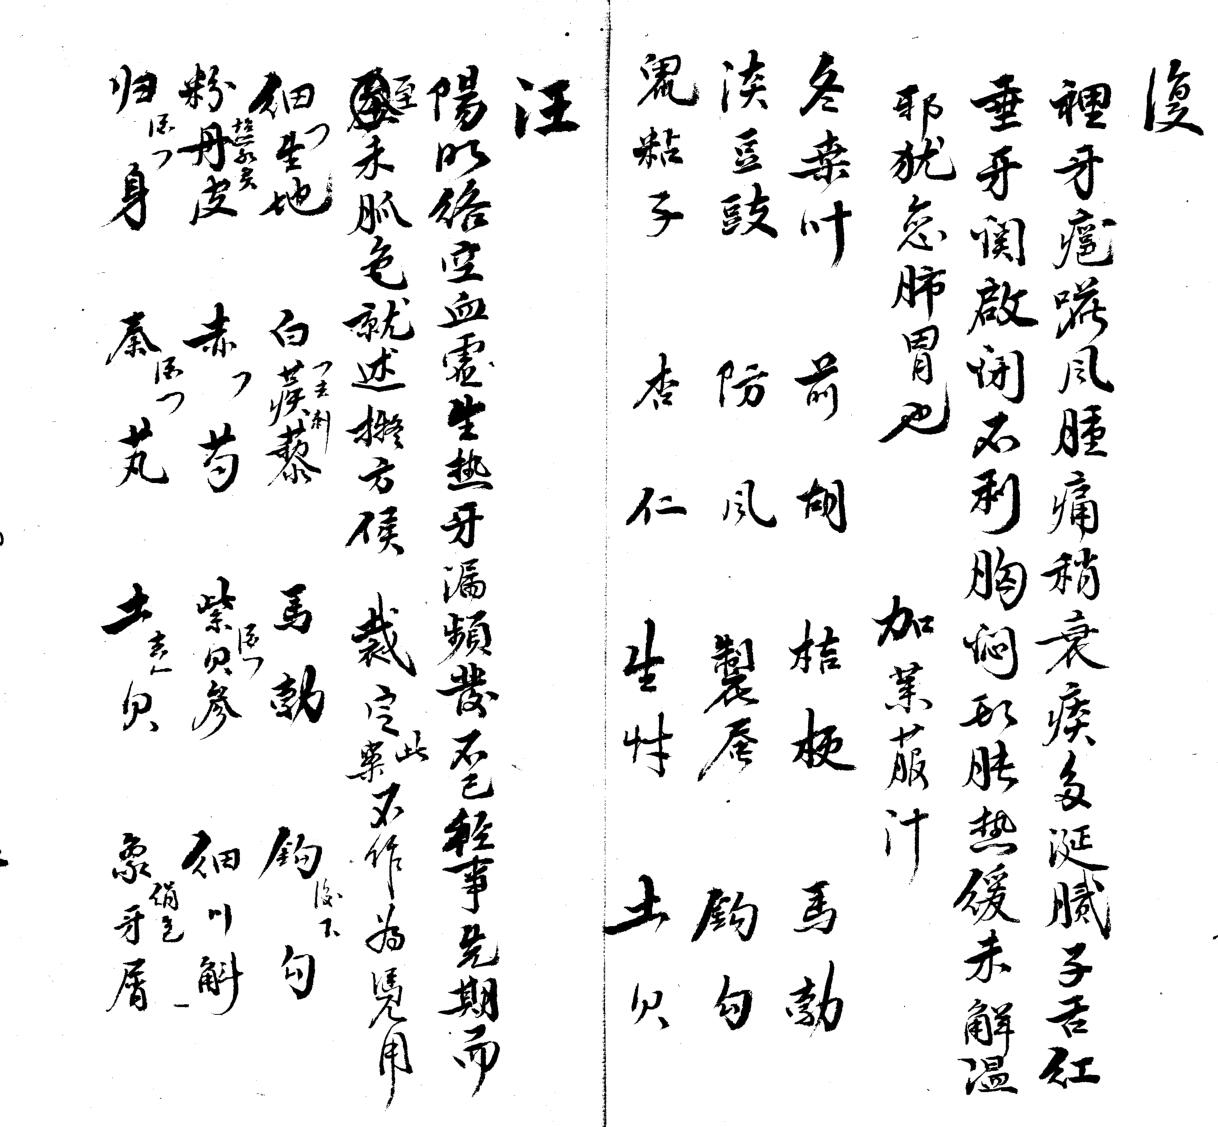 復
裡牙疳蹉风腫痛稍衰痰多涎膩子舌紅
垂牙関啟闭不利胸闷形肢热緩未解温
邪犹恋肺胃也 加莱菔汁
冬桑叶 前胡 桔梗 馬勃
淡豆豉 防风 製蚕 鈎勾
鼠粘子 杏仁 生草 土贝
汪
陽明络空血虚生热牙漏频發不已輕事先期而
至未脈色就述擬方候裁定此案不作為憑用
细生地 白蒺藜 馬勃 鈎勾 後下
粉丹皮 赤芍 紫贝參 细川斛
归身 秦艽 土贝 象牙屑